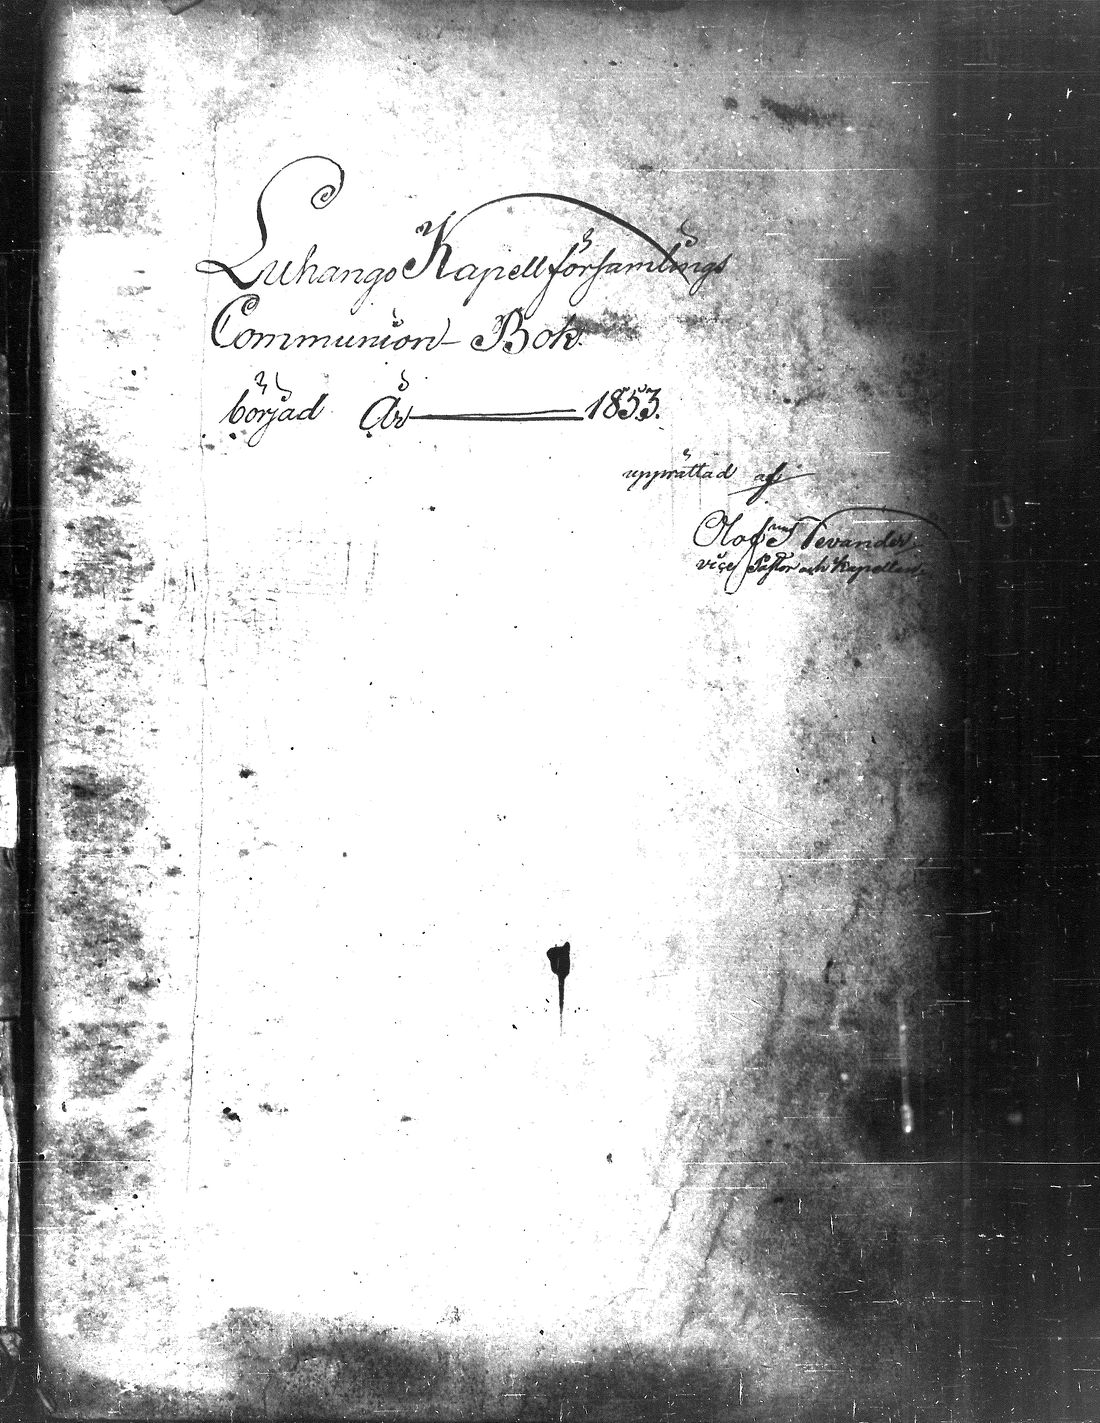 Luhango Kapellförsamlings
Communion Bok
börjad År 1853.
upprättad af
Olof Tevander
vice Pastor och Kapellan